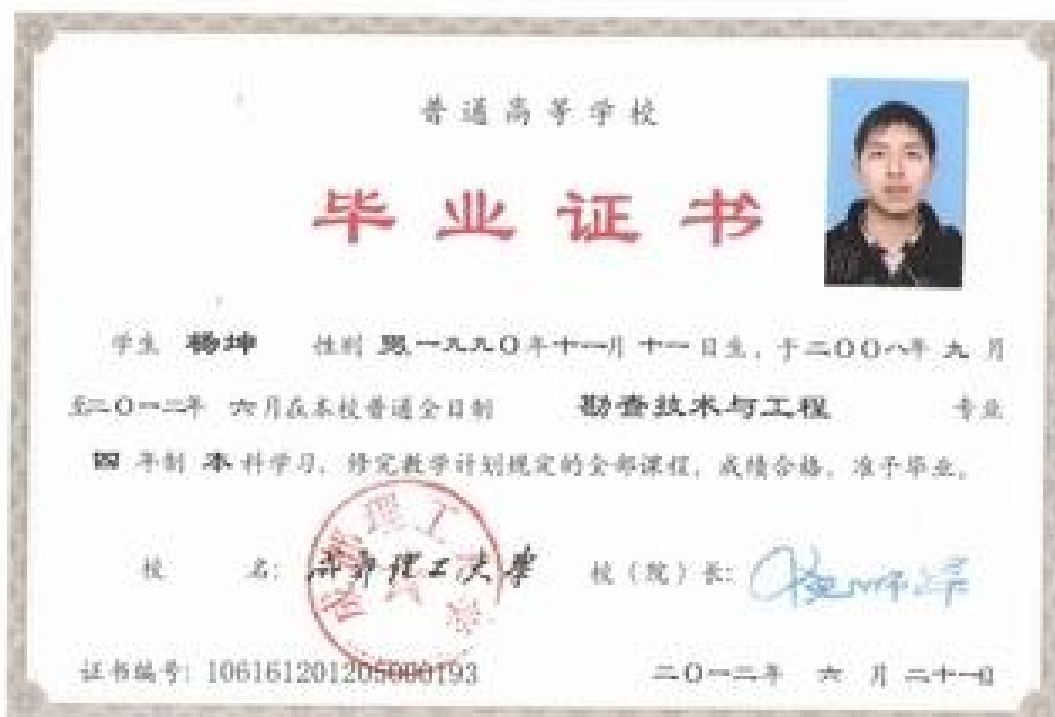 普通高等学校
毕业证书
学生 杨坤 性别 男,一九九〇年十一月 十一 日生,于二〇〇八年 九 月
至二〇一二年 六月在本校普通全日制 勘查技术与工程 专业
四 年制 本 科学习,修完教学计划规定的全部课程,成绩合格,准予毕业。
校 名: 成都理工大学 校(院)长:
证书编号: 106161201205000193 二〇一二年 六 月 二十一日